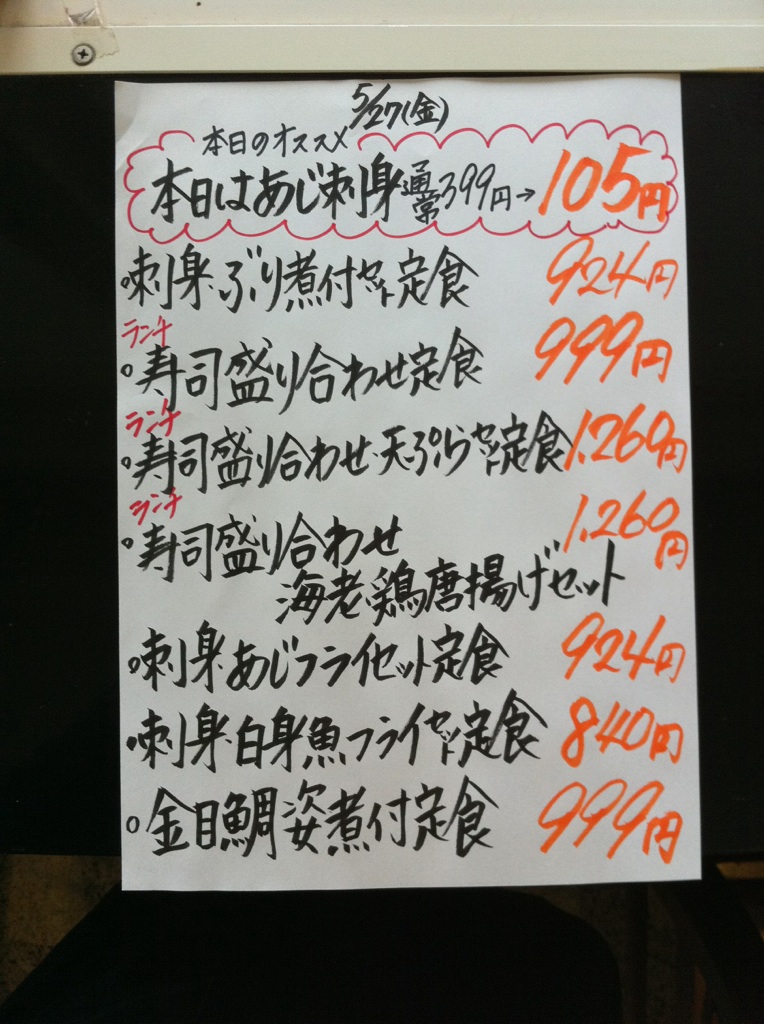 5/27(金)
本日のオススメ
本日はあじ刺身通常399円→105円
○刺身・ぶり煮付セット定食 924円
ランチ
○寿司盛り合わせ定食 999円
ランチ
○寿司盛り合わせ・天ぷらセット定食 1,260円
ランチ
○寿司盛り合わせ 1,260円
海老・鶏唐揚げセット
○刺身・あじフライセット定食 924円
○刺身・白身魚フライセット定食 840円
○金目鯛姿煮付定食 999円